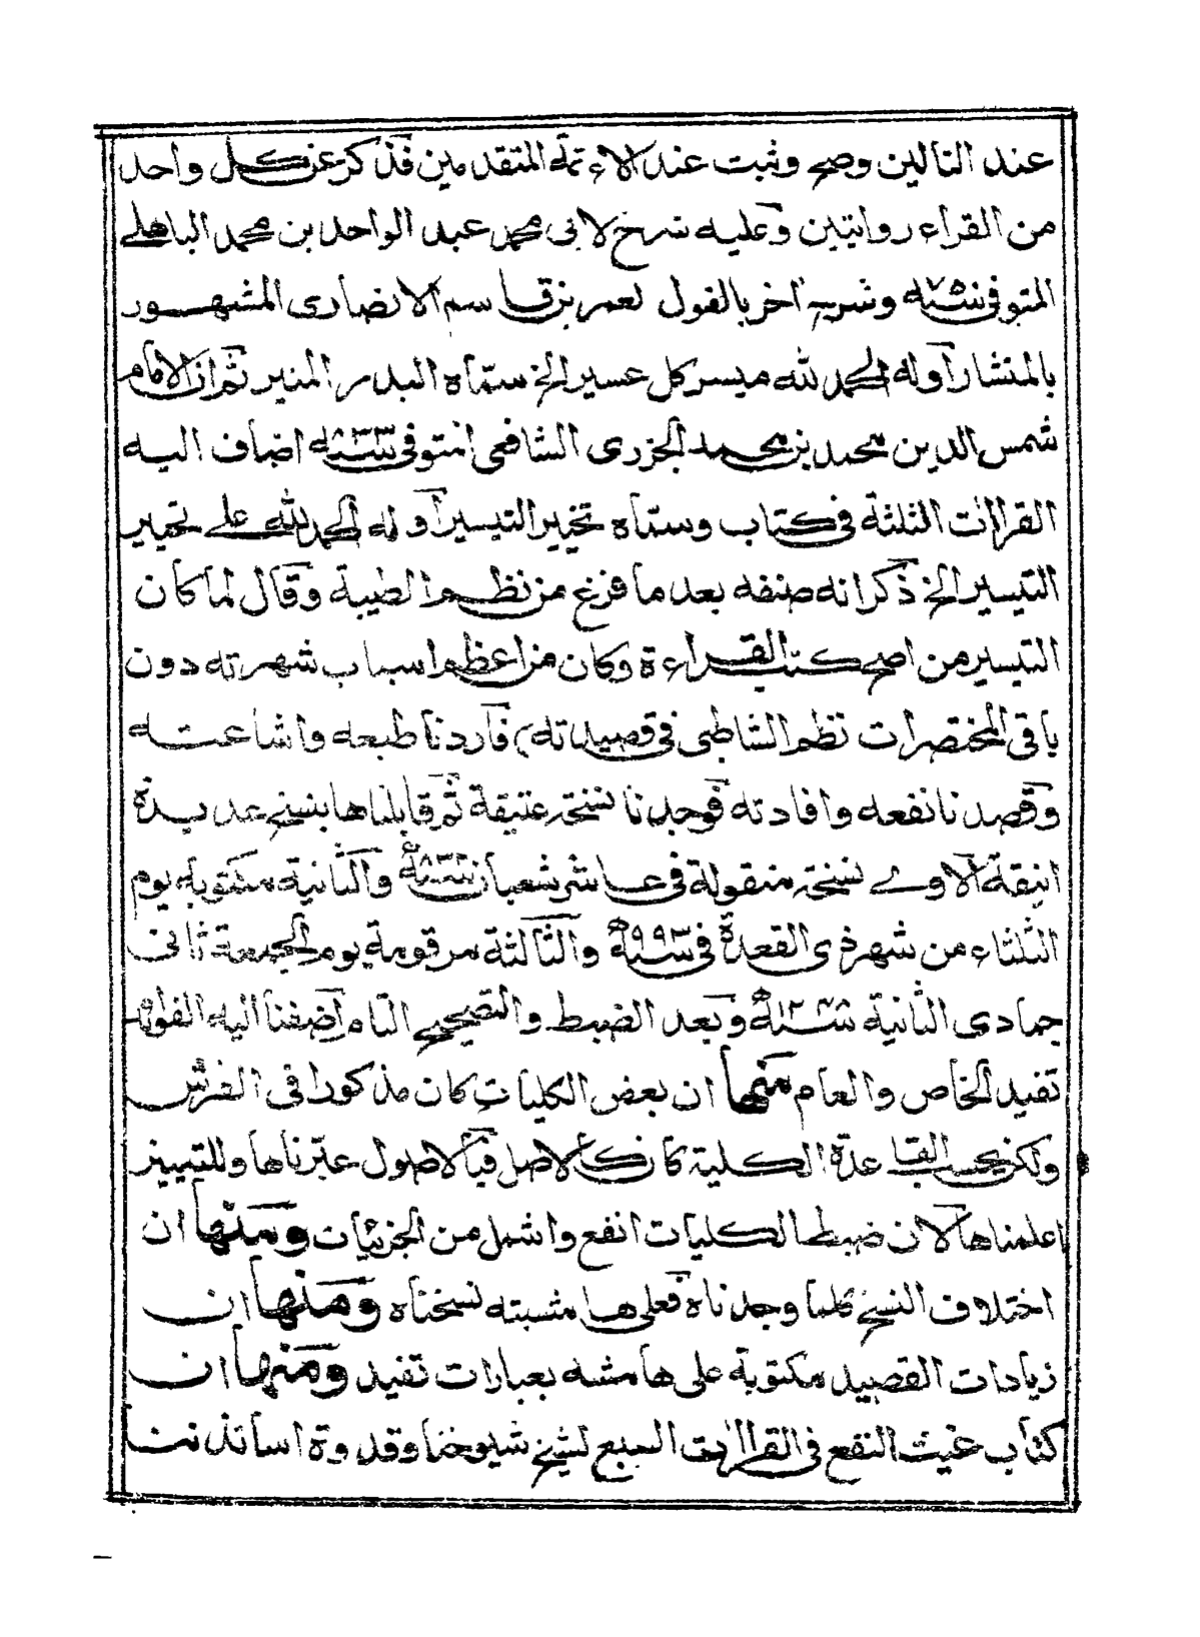 عند التالين وصح وثبت عند الاءئمة المتقدمين فذكر عن كل واحد
من القراء روايتين وعليه شرح لابى محمد عبد الواحد بن محمد الباهلے
المتوفى سنة ٧٥٠ وشرح اخر بالقول لعمر بن قاسم الانصارى المشهور
بالمنشار أوله الحمد لله ميسر كل عسير الخ سماه البدر المنير ثم ان الامام
شمس الدين محمد بن محمد الجزرى الشافعى المتوفى سنة ٨٣٣ اضاف اليه
القراآت الثلثة فى كتاب وسماه تحبير التيسير أوله الحمد لله على تحبير
التيسير الخ ذكر انه صنفه بعد ما فرغ من نظم الطيبة وقال لما كان
التيسير من اصح كتب القراءة وكان من اعظم اسباب شهرته دون
باقى المختصرات نظم الشاطبى فى قصيدته) فأردنا طبعه واشاعته
وقصدنا نفعه وافادته فوجدنا نسخة عتيقة ثم قابلناها بنسخ عديدة
انيقة الاولے نسخة منقولة فى عاشر شعبان والثانية مكتوبة يوم
الثلثاء من شهر ذى القعدة فى سنة ٩٩٣ والثالثة مرقومة يوم الجمعة ثانى
جمادى الثانية وبعد الضبط والتصحيح التام أضفنا اليه الفوائد
تفيد الخاص والعام منها ان بعض الكليات كان مذكورا فى الفرش
ولكن بحسب القاعدة الكلية كان كالاصل فبالاصول عبرناها وللتمييز
اعلمناها لان ضبط الكليات انفع واشمل من الجزئيات ومنها ان
اختلاف النسخ كلما وجدناه فعلى هامشته نسخناه ومنها ان
زيادات القصيد مكتوبة على هامشه بعبارات تفيد ومنها ان
كتاب غيث النفع فى القراآت السبع لشيخ شيوخنا وقدوة اساتذتنا